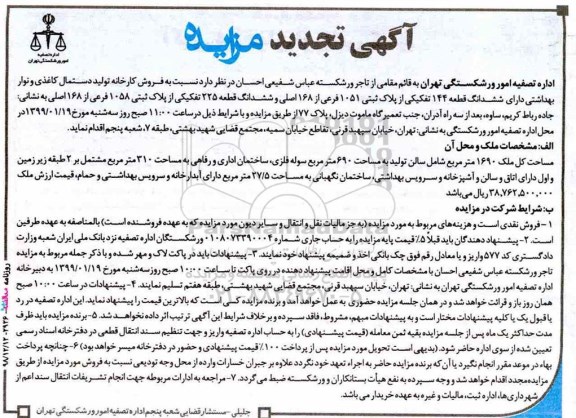 آگهی تجدید مزایده
اداره تصفیه
امور ورشکستگی تهران
اداره تصفیه امور ورشکستگی تهران به قائم مقامی از تاجر ورشکسته عباس شفیعی احسان در نظر دارد نسبت به فروش کارخانه تولید دستمال کاغذی و نوار
بهداشتی دارای ششدانگ قطعه ۱۴۴ تفکیکی از پلاک ثبتی ۱۰۵۱ فرعی از ۱۶۸ اصلی و ششدانگ قطعه ۲۲۵ تفکیکی از پلاک ثبتی ۱۰۵۸ فرعی از ۱۶۸ اصلی به نشانی:
جاده رباط کریم، ساوه، بعد از سه راه آدران، جنب تعمیرگاه ماموت دیزل، پلاک ۷۷ از طریق مزایده و با شرایط ذیل در ساعت ۱۱:۰۰ صبح روز سه‌شنبه مورخ ۱۳۹۹/۰۱/۱۹ در
محل اداره تصفیه امور ورشکستگی به نشانی: تهران، خیابان سپهبد قرنی، تقاطع خیابان سمیه، مجتمع قضایی شهید بهشتی، طبقه ۷، شعبه پنجم اقدام نماید.
الف: مشخصات ملک و محل آن
مساحت کل ملک ۱۶۹۰ متر مربع شامل سالن تولید به مساحت ۶۹۰ متر مربع سوله فلزی، ساختمان اداری و رفاهی به مساحت ۳۱۰ متر مربع مشتمل بر ۲ طبقه زیر زمین
و اول دارای اتاق و سالن و آشپزخانه و سرویس بهداشتی، ساختمان نگهبانی به مساحت ۲۷/۵ متر مربع دارای آبدارخانه و سرویس بهداشتی و حمام، قیمت ارزش ملک
۳۸,۷۶۲,۵۰۰,۰۰۰ ریال می‌باشد
ب: شرایط شرکت در مزایده
۱ - فروش نقدی است و هزینه‌های مربوط به مورد مزایده (به جز مالیات نقل و انتقال و سایر دیون مورد مزایده که به عهده فروشنده است) بالمناصفه به عهده طرفین
است. ۲- پیشنهاد دهندگان باید قبلاً ۵٪ قیمت پایه مزایده را به حساب جاری شماره ۰۱۰۸۰۷۳۳۹۰۰۰۴ ورشکستگان اداره تصفیه نزد بانک ملی ایران شعبه وزارت
دادگستری کد ۵۷۷ واریز و یا معادل رقم فوق چک بانکی اخذ و ضمیمه پیشنهاد خود نمایند. ۳- پیشنهادات باید در پاکت لاک و مهر شده و با ذکر جمله مربوط به مزایده
تاجر ورشکسته عباس شفیعی احسان با مشخصات کامل و محل اقامت پیشنهاد دهنده در روی پاکت تا ساعت ۱۰:۰۰ صبح روز سه‌شنبه مورخ ۱۳۹۹/۰۱/۱۹ به دبیرخانه
اداره تصفیه امور ورشکستگی به نشانی: تهران، خیابان سپهبد قرنی، مجتمع قضایی شهید بهشتی، طبقه هفتم تسلیم نمایند. ۴- پیشنهادات در ساعت ۱۰:۰۰ صبح
همان روز باز و قرائت خواهد شد و در همان جلسه مزایده حضوری به عمل خواهد آمد و برنده مزایده کسی است که بالاترین قیمت را پیشنهاد نماید. این اداره تصفیه در رد
یا قبول یک یا کلیه پیشنهادات مختار است و به پیشنهادات مبهم، مشروط، فاقد سپرده و برخلاف شرایط این آگهی ترتیب اثر داده نخواهد شد. ۵- برنده مزایده باید ظرف
مدت حداکثر یک ماه پس از جلسه مزایده بقیه ثمن معامله (قیمت پیشنهادی) را به حساب اداره تصفیه واریز و جهت تنظیم سند انتقال قطعی در دفترخانه اسناد رسمی
تعیین شده از سوی اداره حاضر شود. (بدیهی است تحویل مورد مزایده پس از پرداخت ۱۰۰٪ قیمت پیشنهادی و حضور در دفترخانه میسر خواهد بود) ۶- چنانچه پرداخت
بهاء در موعد مقرر انجام نگیرد یا آن که برنده مزایده حاضر به اجراء تعهد خود نگردد علاوه بر جبران خسارات وارده از محل وجه تودیعی نسبت به فروش مورد مزایده از طریق
مزایده مجدد اقدام خواهد شد و وجه سپرده به نفع هیأت بستانکاران و ورشکسته ضبط می‌گردد. ۷- مراجعه به ادارات مربوطه جهت انجام تشریفات انتقال سند اعم از
شهرداری‌ها، اداره ثبت، مالیات و غیره به عهده خریدار می‌باشد.
جلیلی - مستشار قضایی شعبه پنجم اداره تصفیه امور ورشکستگی تهران